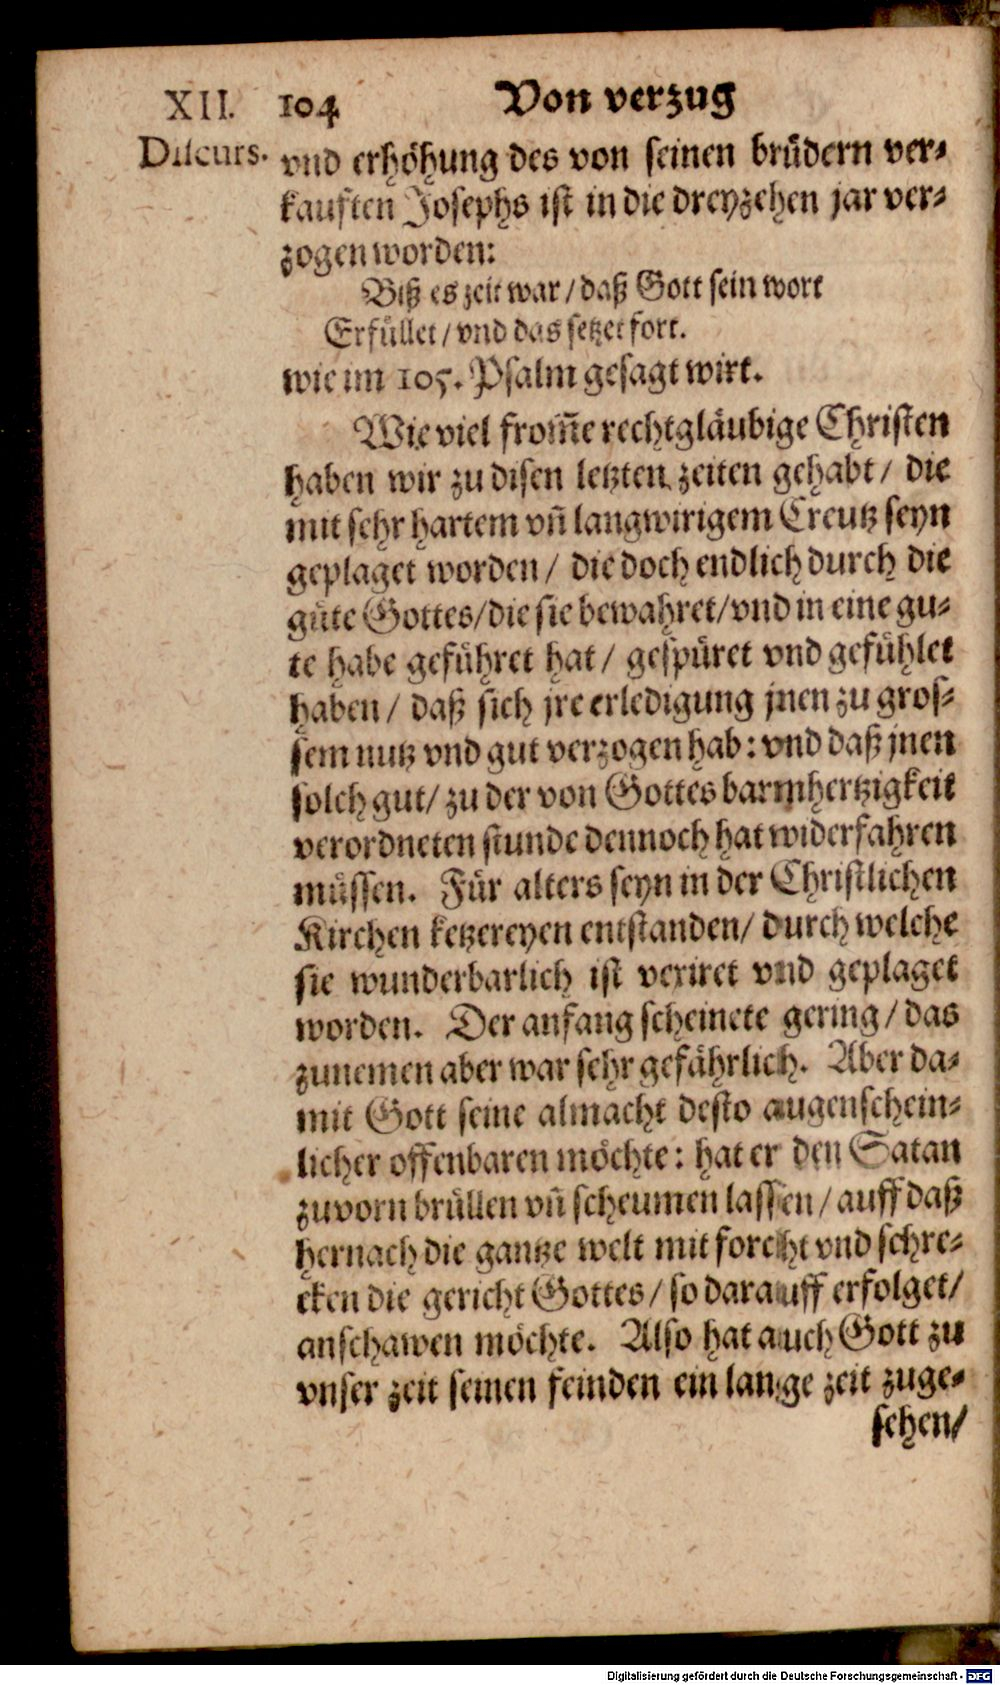 XII. 104 Von verzug
Discurs. vnd erhöhung des von seinen brüdern ver-
kauften Josephs ist in die dreyzehen jar ver-
zogen worden:
Biß es zeit war / daß Gott sein wort
Erfüllet / vnd das setzet fort.
wie im 105. Psalm gesagt wirt.
Wie viel from̃e rechtgläubige Christen
haben wir zu disen letzten zeiten gehabt / die
mit sehr hartem vñ langwirigem Creutz seyn
geplaget worden / die doch endlich durch die
güte Gottes / die sie bewahret / vnd in eine gu-
te habe geführet hat / gespüret vnd gefühlet
haben / daß sich jre erledigung jnen zu gros-
sem nutz vnd gut verzogen hab: vnd daß jnen
solch gut / zu der von Gottes barmhertzigkeit
verordneten stunde dennoch hat widerfahren
müssen. Für alters seyn in der Christlichen
Kirchen ketzereyen entstanden / durch welche
sie wunderbarlich ist vexiret vnd geplaget
worden. Der anfang scheinete gering / das
zunemen aber war sehr gefährlich. Aber da-
mit Gott seine almacht desto augenschein-
licher offenbaren möchte: hat er den Satan
zuvorn brüllen vñ scheumen lassen / auff daß
hernach die gantze welt mit forcht vnd schre-
cken die gericht Gottes / so darauff erfolget /
anschawen möchte. Also hat auch Gott zu
vnser zeit seinen feinden ein lange zeit zuge-
sehen /
Digitalisierung gefördert durch die Deutsche Forschungsgemeinschaft - DFG